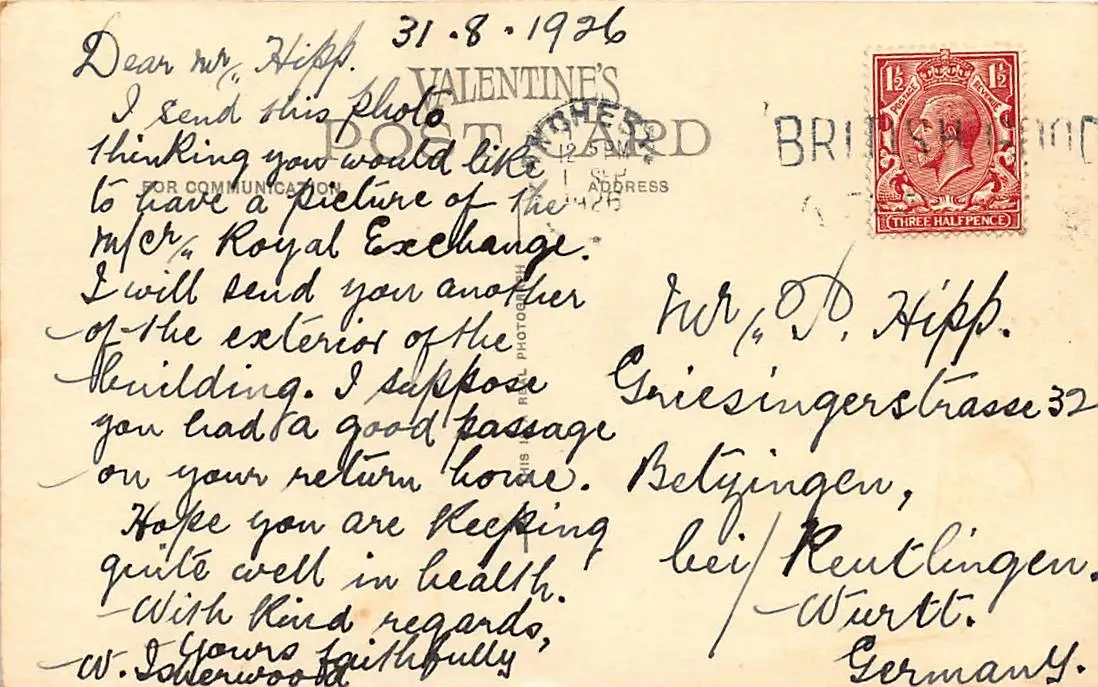 31·8·1926
Dear Mr,, Hipp.
I send this photo
thinking you would like
to have a picture of the
M/cr,, Royal Exchange.
I will send you another
of the exterior of the
building. I suppose
you had a good passage
on your return home.
Hope you are keeping
quite well in health.
With kind regards,
Yours faithfully
W. Isherwood
VALENTINE'S
POST CARD
FOR COMMUNICATION
ADDRESS
THIS IS A REAL PHOTOGRAPH
12 PM
1 SEP
1926
BRITISH
1½ 1½
POSTAGE REVENUE
THREE HALFPENCE
Mr,, P. Hipp.
Griesingerstrasse 32
Betzingen,
bei/Reutlingen.
Württ.
Germany.